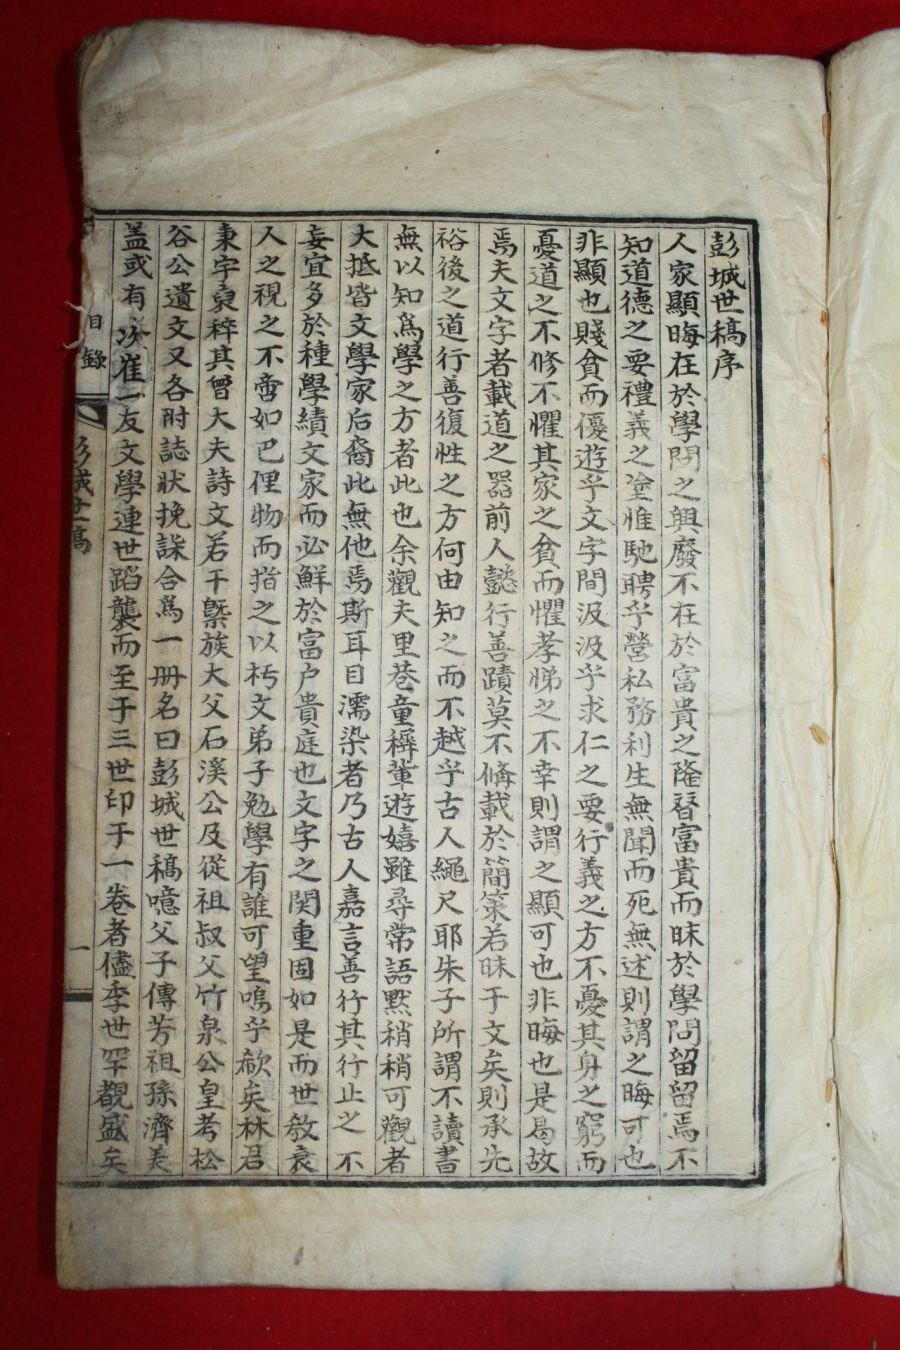 彭城世稿序
人家顯晦在於學問之興廢不在於富貴之隆替富貴而昧於學問留留焉不
知道德之要禮義之塗惟馳騁乎營私務利生無聞而死無述則謂之晦可也
非顯也賤貧而優遊乎文字間汲汲乎求仁之要行義之方不憂其身之窮而
憂道之不修不懼其家之貧而懼孝悌之不幸則謂之顯可也非晦也是曷故
焉夫文字者載道之器前人懿行善蹟莫不備載於簡策若昧于文矣則承先
裕後之道行善復性之方何由知之而不越乎古人繩尺耶朱子所謂不讀書
無以知爲學之方者此也余觀夫里巷童穉輩遊嬉雖尋常語默稍稍可觀者
大抵皆文學家后裔此無他焉斯耳目濡染者乃古人嘉言善行其行止之不
妄宜多於種學績文家而必鮮於富户貴庭也文字之関重固如是而世敎衰
人之視之不啻如巴俚物而指之以朽文弟子勉學有誰可望嗚乎欷矣林君
東字裒粹其曾大夫詩文若干槩族大父石溪公及從祖叔父竹泉公皇考松
谷公遺文又各附誌狀挽誄合爲一册名曰彭城世稿噫父子傳芳祖孫濟美
盖或有 崔一友文學連世蹈襲而至于三世印于一卷者儘季世罕覩盛矣
目錄
彭城世稿
一